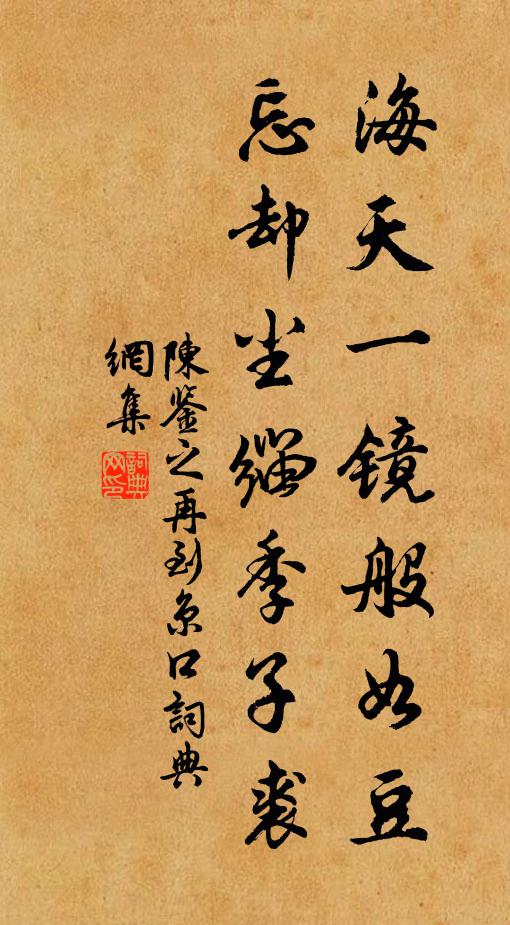 海天一镜般如豆
忘却尘缁季子裘
陳鉴之再到京口詞典
網集
詞典
网印